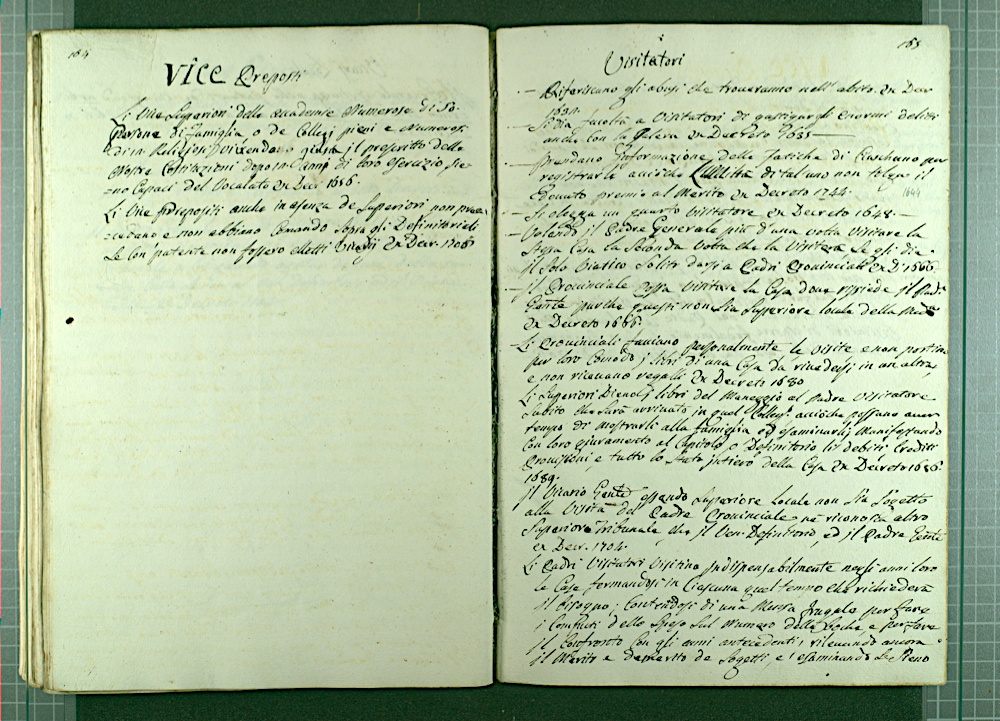 184
Vice Prepositi
Li Vice Superiori delle Accademie Numerose di So-
di Famiglia o de Collegi pieni e Numerosi
di Religiosi vivendo giusta il prescritto delle
Nostre Costituzioni dopo anni di loro esercizio sie-
no Capaci del Vocalato Ex Decr 1686.
Li Vice Prepositi anche in assenza de Superiori non prece-
cedano e non abbiano Comando sopra gli Definitoriali
se con patente non fossero eletti Ex Decr. 1706
185
Visitatori
— Riferiscano gli abusi che troveranno nell'abito. Ex Decr
1639.
— Si dia facoltà a Visitatori di gastigar gli enormi delitti
anche con la Galera Ex Decreto 1635
— Prendano Informazione delle fatiche di Ciascheduno per
registrarle acciochè l'umiltà di taluno non tolga il
dovuto premio al Merito Ex Decreto 1744. 1644
— Si elegga un quarto Visitatore Ex Decreto 1648.—
— Volendo il Padre Generale più d'una volta Visitare la
stessa Casa la seconda volta che la Visiterà se gli dia
il solo Viatico solito darsi a Padri Provinciali Ex D. 1666
— Il Provinciale possa visitare la Casa dove risiede il Padre
Gen.le purche questi non sia Superiore locale della Med.ma
Ex Decreto 1666.
— Li Provinciali facciano personalmente le visite e non portino
per loro comodo i libri di una Casa da rivedersi in un altra,
e non ricevano regalli Ex Decreto 1680
Li Superiori Dieno i libri del Maneggio al Padre Visitatore
subito che sarà arrivato in quel Colleg.o acciochè possano aver
tempo di mostrarli alla famiglia ed esaminarli, Manifestando
con loro giuramento al Capitolo o Definitorio li debiti Crediti
Provisioni, e tutto lo stato intiero della Casa Ex Decreto 1686.
1689.
Il Vicario Gen.le essendo Superiore locale non sia sogetto
alla Visita del Padre Provinciale ne riconosca altro
Superiore Tribunale, che il Ven. Definitorio, ed il Padre Gen.le
Ex Decr. 1704.
Li Padri Visitatori Visitino Indispensabilmente negli anni loro
le Case formandosi in Ciascuna quel tempo che richiederà
il bisogno; Contendosi di una Mensa frugale per fare
i Computi delle spese sul Numero delle boche, e per fare
il Confronto con gli anni antecedenti, rilevando ancora
il Merito e demerito de Sogetti, e esaminando se sieno